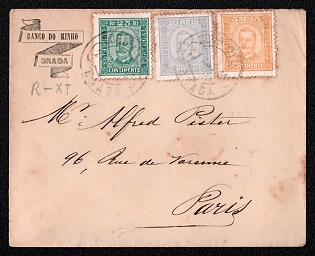 BANCO DO MINHO
BRAGA
R-XI
25 R.
CONTINENTE
CONTINENTE
CONTINENTE
BRAGA
Mr. Alfred Pister
96, Rue de Varenne
Paris